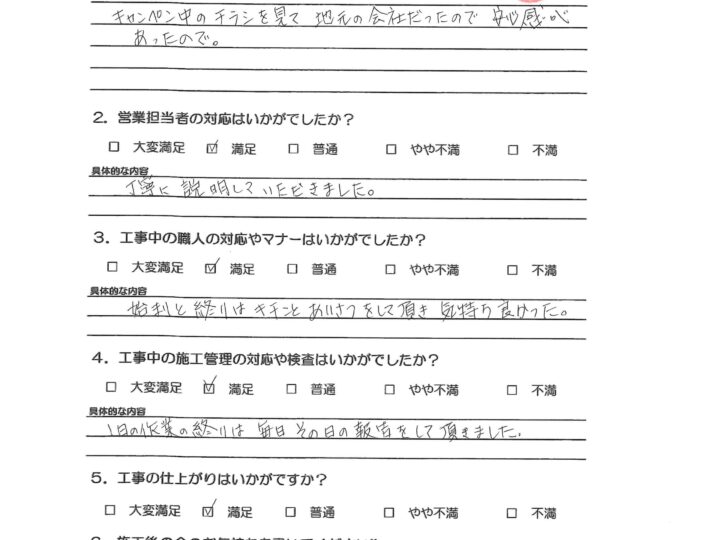 キャンペン中のチラシを見て 地元の会社だったので 安心感が
あったので。
2. 営業担当者の対応はいかがでしたか？
☐ 大変満足 ☑ 満足 ☐ 普通 ☐ やや不満 ☐ 不満
具体的な内容
丁寧に説明していただきました。
3. 工事中の職人の対応やマナーはいかがでしたか？
☐ 大変満足 ☑ 満足 ☐ 普通 ☐ やや不満 ☐ 不満
具体的な内容
始まりと終りはキチンとあいさつをして頂き 気持ち良かった。
4. 工事中の施工管理の対応や検査はいかがでしたか？
☐ 大変満足 ☑ 満足 ☐ 普通 ☐ やや不満 ☐ 不満
具体的な内容
1日の作業の終りは 毎日その日の報告をして頂きました。
5. 工事の仕上がりはいかがですか？
☐ 大変満足 ☑ 満足 ☐ 普通 ☐ やや不満 ☐ 不満